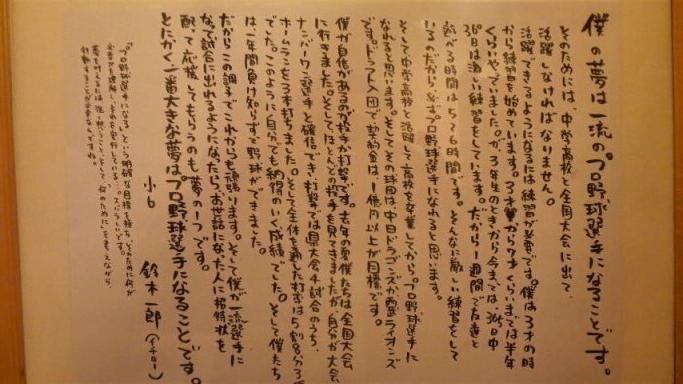 僕の夢は一流のプロ野球選手になることです。
そのためには、中学、高校と全国大会に出て、
活躍しなければなりません。
活躍できるようになるには練習が必要です。僕は3才の時
から練習を始めています。3才から7才くらいまでは半年
くらいやっていましたが、3年生のときから今までは365日中
360日は激しい練習をしています。だから1週間で友達と
遊べる時間は5~6時間です。そんなに厳しい練習をして
いるのだから、必ずプロ野球選手になれると思います。
そして中学、高校と活躍して高校を卒業してからプロ野球選手に
なれると思います。そしてその球団は、中日ドラゴンズか西武ライオンズ
です。ドラフト入団で契約金は1億円以上が目標です。
僕が自信があるのが投手か打撃です。去年の夏僕たちは全国大会
に行きました。そしてほとんどの投手を見てきましたが、自分が大会
ナンバーワン選手と確信でき、打撃では県大会4試合のうち、
ホームランを3本打ちました。そして全体を通した打率は5割8分3厘
でした。このように自分でも納得のいく成績でした。そして僕たち
は一年間負け知らずで野球ができました。
だからこの調子でこれからも頑張ります。そして僕が一流選手に
なって試合に出れるようになったら、お世話になった人に招待状を
配って応援してもらうのも夢の1つです。
とにかく一番大きな夢はプロ野球選手になることです。
小6 鈴木一郎(イチロー)
『プロ野球選手になる』という明確な目標を持ち、そのために何が